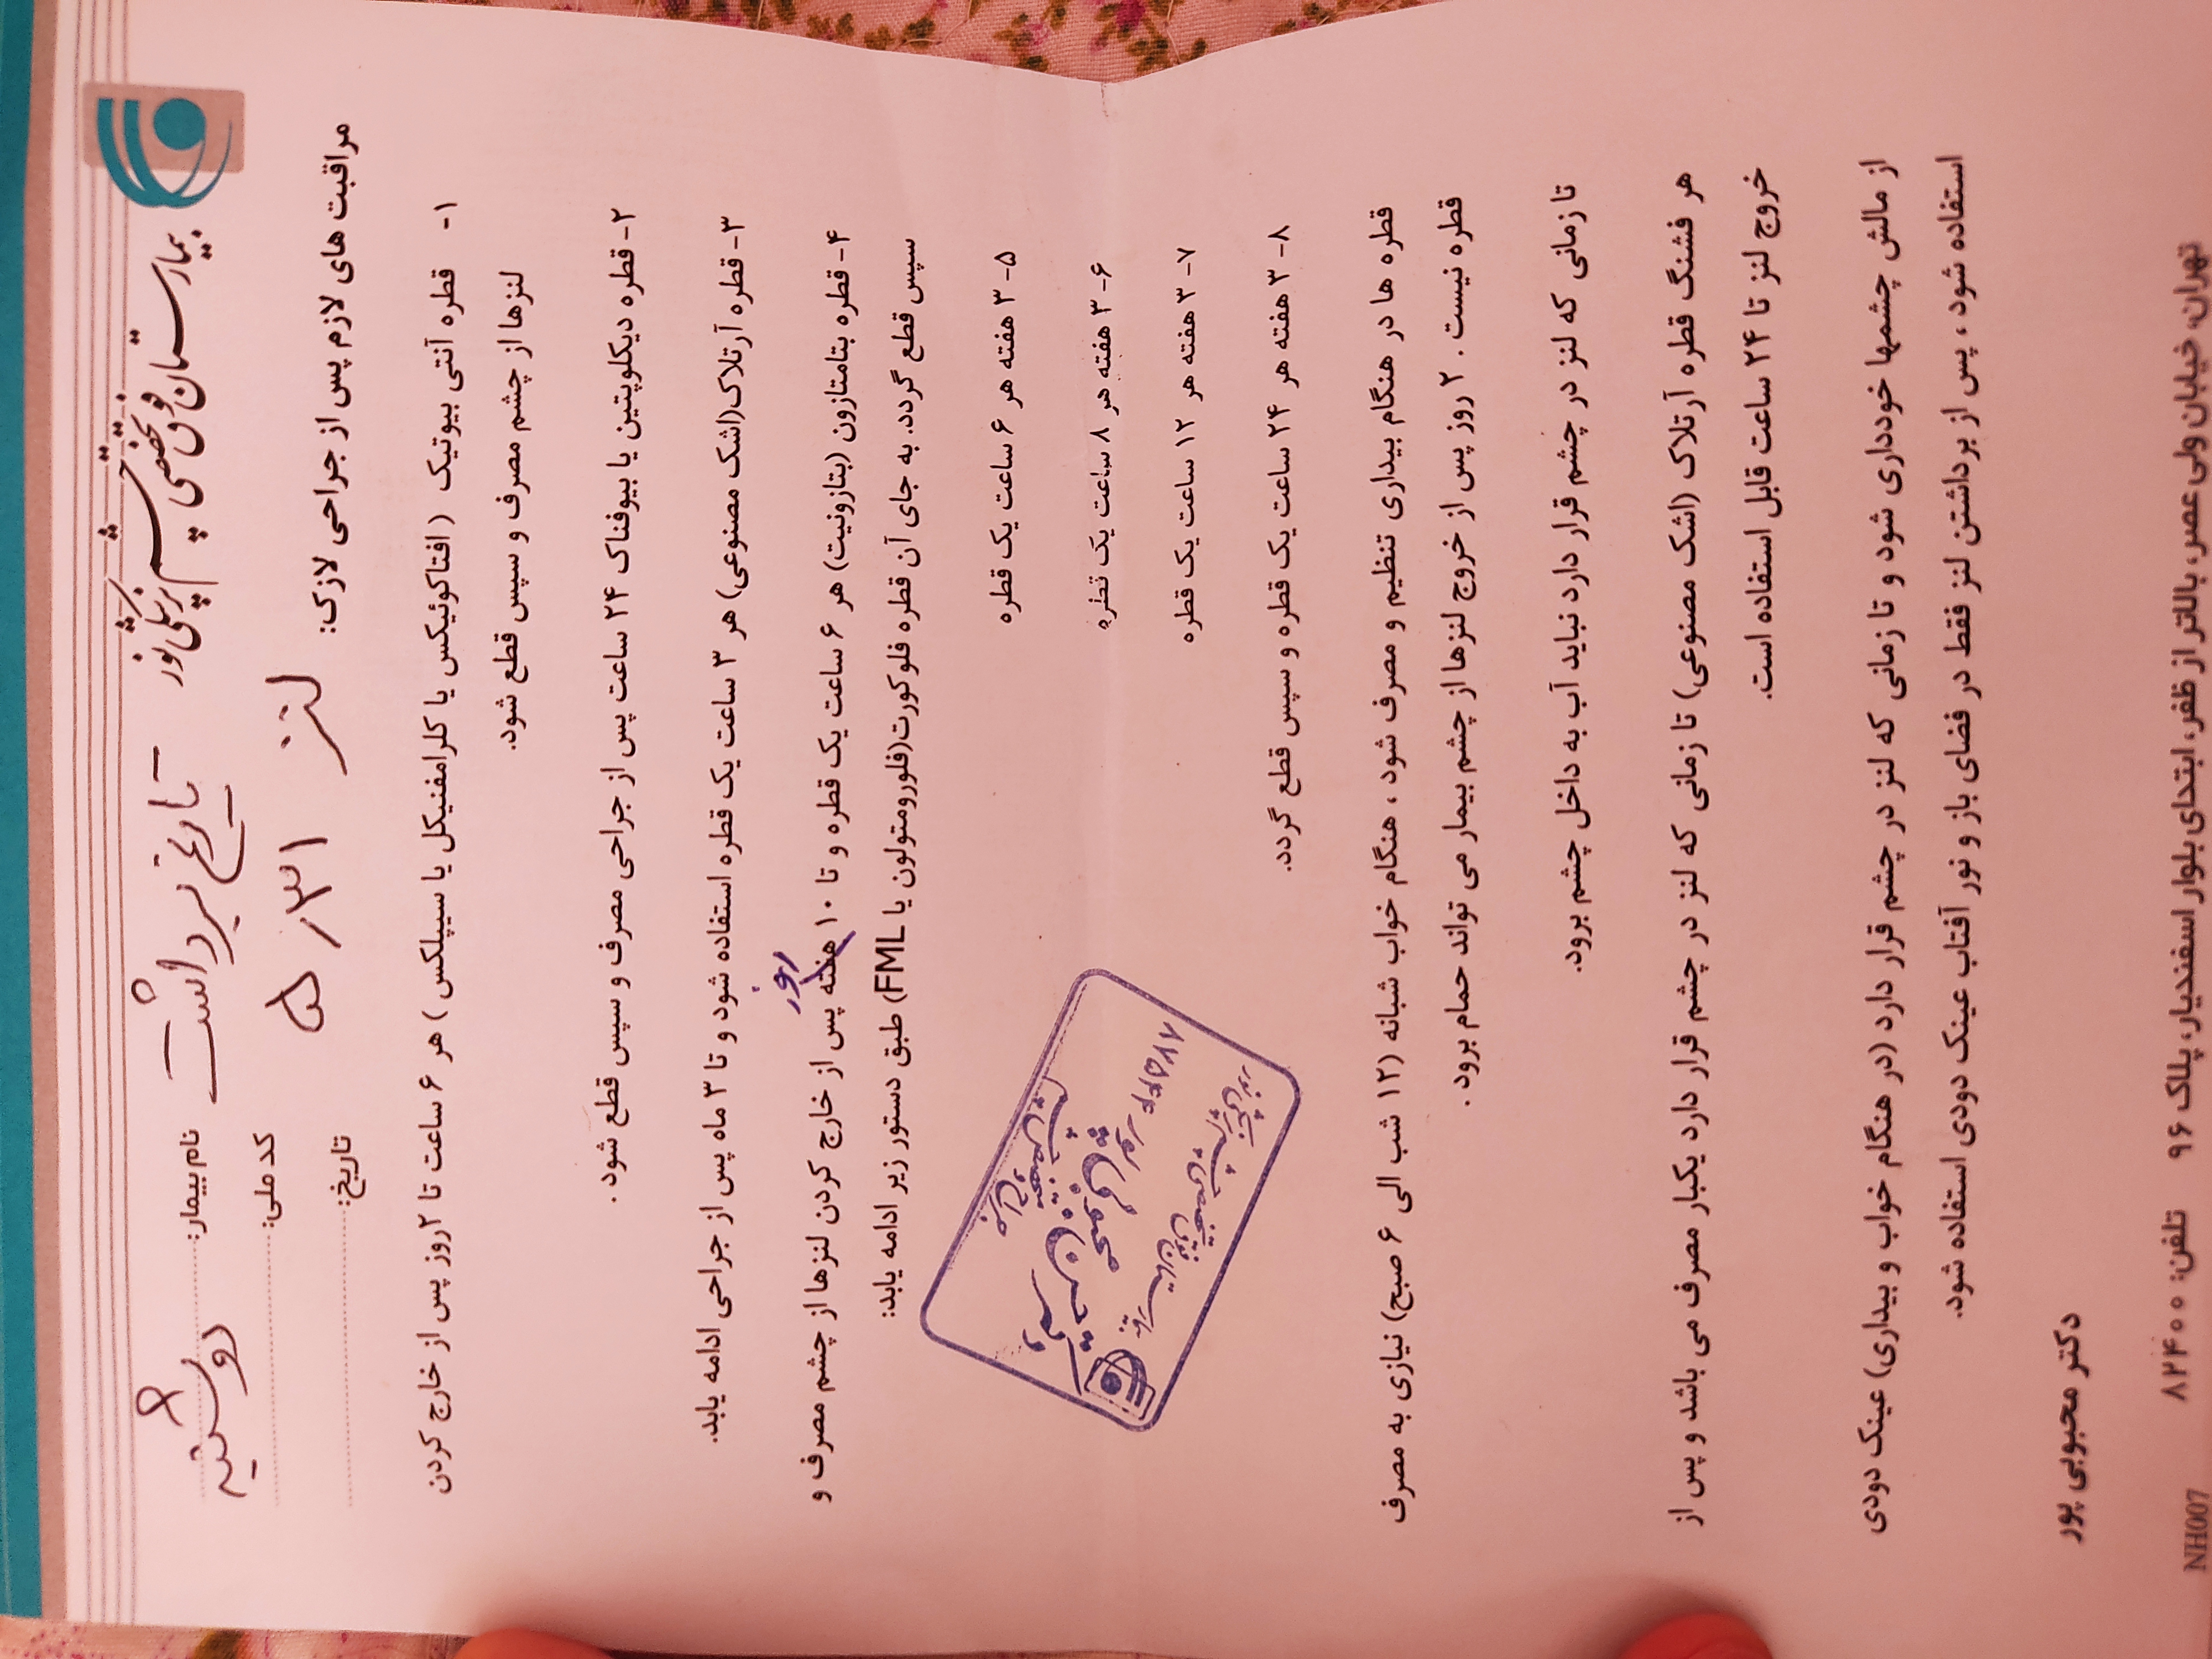 بیمارستان فوق تخصصی چشم پزشکی نور
نام بیمار:
کد ملی:
تاریخ:
تاریخ برداشت -
لنز ۵/۳۱
دوشنبه
مراقبت های لازم پس از جراحی لازک:
۱- قطره آنتی بیوتیک (افتاکوئیکس یا کلرامفنیکل یا سیپلکس) هر ۶ ساعت تا ۲روز پس از خارج کردن
لنزها از چشم مصرف و سپس قطع شود.
۲- قطره دیکلوپتین یا بیوفناک ۲۴ ساعت پس از جراحی مصرف و سپس قطع شود.
۳- قطره آرتلاک(اشک مصنوعی) هر ۳ ساعت یک قطره استفاده شود و تا ۳ ماه پس از جراحی ادامه یابد.
روز
۴- قطره بتامتازون (بتازونیت) هر ۶ ساعت یک قطره و تا ۱۰ هفته پس از خارج کردن لنزها از چشم مصرف و
سپس قطع گردد. به جای آن قطره فلوکورت(فلورومتولون یا FML) طبق دستور زیر ادامه یابد:
۵- ۳ هفته هر ۶ ساعت یک قطره
۶- ۳ هفته هر ۸ ساعت یک قطره
۷- ۳ هفته هر ۱۲ ساعت یک قطره
۸- ۳ هفته هر ۲۴ ساعت یک قطره و سپس قطع گردد.
قطره ها در هنگام بیداری تنظیم و مصرف شود ، هنگام خواب شبانه (۱۲ شب الی ۶ صبح) نیازی به مصرف
قطره نیست . ۲ روز پس از خروج لنزها از چشم بیمار می تواند حمام برود .
تا زمانی که لنز در چشم قرار دارد نباید آب به داخل چشم برود.
هر فشنگ قطره آرتلاک (اشک مصنوعی) تا زمانی که لنز در چشم قرار دارد یکبار مصرف می باشد و پس از
خروج لنز تا ۲۴ ساعت قابل استفاده است.
از مالش چشمها خودداری شود و تا زمانی که لنز در چشم قرار دارد (در هنگام خواب و بیداری) عینک دودی
استفاده شود ، پس از برداشتن لنز فقط در فضای باز و نور آفتاب عینک دودی استفاده شود.
دکتر محبوبی پور
تهران، خیابان ولی عصر، بالاتر از ظفر، ابتدای بلوار اسفندیار، پلاک ۹۶ تلفن: ۸۲۴۰۰
NH007